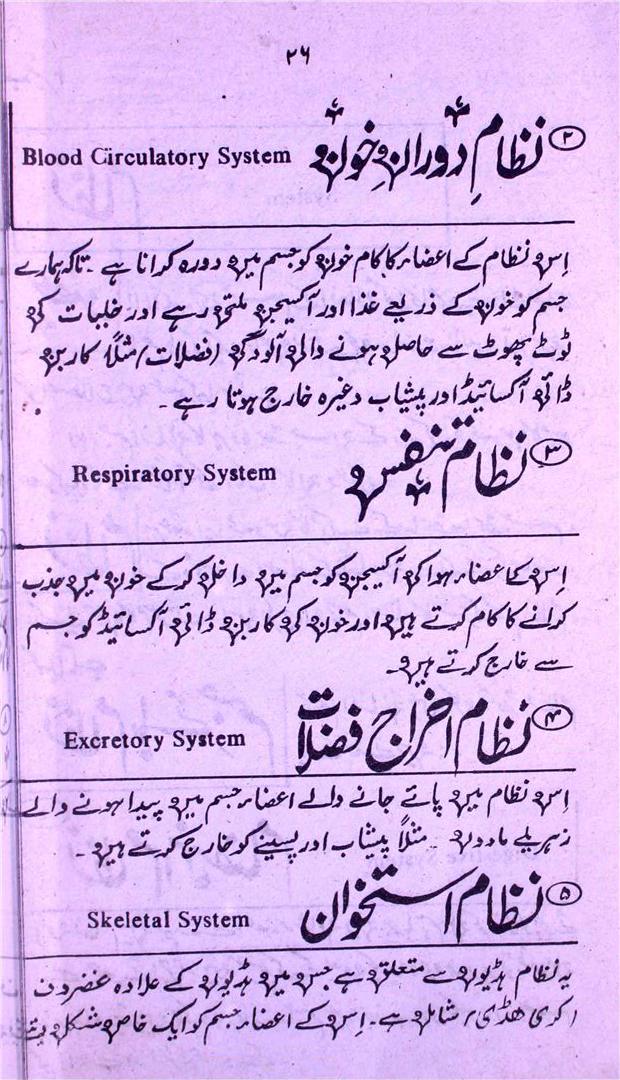 ۲۶
۲ نظامِ دورانِ خون Blood Circulatory System
اِس نظام کے اعضاء کا کام خون کو جسم میں دورہ کرانا ہے ۔ تاکہ ہمارے
جسم کو خون کے ذریعے غذا اور آکسیجن ملتی رہے اور خلیات کی
ٹوٹ پھوٹ سے حاصل ہونے والی آلودگی (فضلات) مثلًا کاربن
ڈائی آکسائیڈ اور پیشاب وغیرہ خارج ہوتا رہے ۔
۳ نظام تنفس Respiratory System
اِس کا اعضاء ہوا کی آکسیجن کو جسم میں داخل کرکے خون میں جذب
کرانے کا کام کرتے ہیں اور خون کی کاربن ڈائی آکسائیڈ کو جسم
سے خارج کرتے ہیں ۔
۴ نظام اخراج فضلات Excretory System
اِس نظام میں پائے جانے والے اعضاء جسم میں پیدا ہونے والے
زہریلے مادوں ۔ مثلًا پیشاب اور پسینے کو خارج کرتے ہیں ۔
۵ نظام استخوان Skeletal System
یہ نظام ہڈیوں سے متعلق ہے جس میں ہڈیوں کے علاوہ غضروف
(کری ھڈی) شامل ہے ۔ اِس کے اعضاء جسم کو ایک خاص شکل